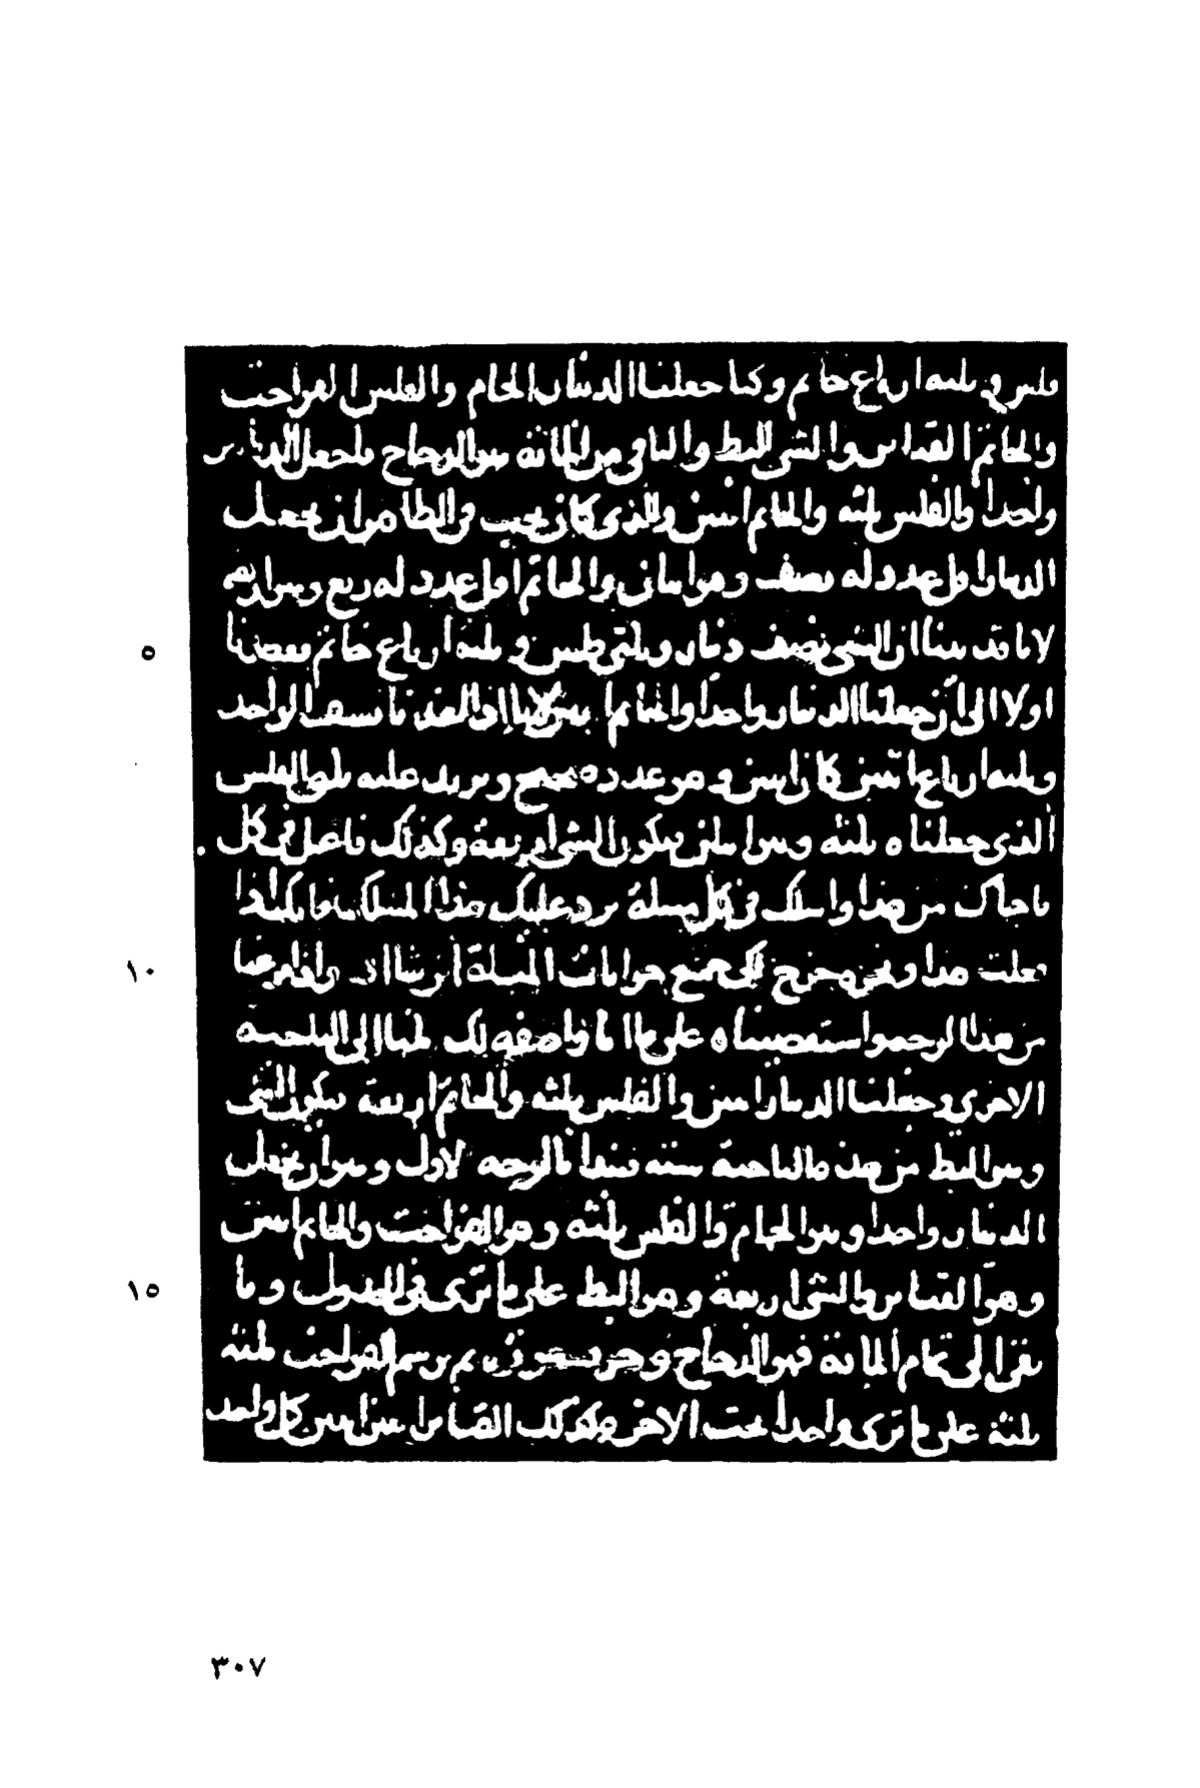 فلس و ثلثه ارباع خاتم وكنا جعلنا الدينار الحام والفلس الفواخت
والخاتم القنابر والشى البط والباقى من الماىة هو الدجاج فلنجعل الدينار
واحدا والفلس ثلثه والخاتم اثنين والذى كان يجب فى الظاهر ان نجعل
الدينار اول عدد له نصف وهو اثنان والخاتم اول عدد له ربع وهو اربعه
لانا قد بينا ان الشى نصف دينار وثلثى فلس و ثلثه ارباع خاتم فقصدنا
اولا الى ان جعلنا الدينار واحدا والخاتم اثنين لانا اذا اخذنا نصف الواحد
وثلثه ارباع اثنين كان اثنين وهو عدد صحيح ونزيد عليه ثلثى الفلس
الذى جعلناه ثلثه وهو اثنان فيكون الشى اربعة وكذلك فاعمل فى كل
ما جاك من هذا واسلك فى كل مسلة ترد عليك هذا المسلك فاذا
فعلت هذا ونحن نخرج لك جميع جوابات المسلة ان شا الله فاذا فرغنا
من هذا الوجه واستقصيناه على ما انا واصفه لك ملنا الى الناحيه
الاخرى وجعلنا الدينار اثنين والفلس ثلثه والخاتم اربعة فيكون الشى
وهو البط من هذه الناحية سته فنبدا بالوجه الاول وهو ان نجعل
الدينار واحدا وهو الحمام والفلس ثلثه وهو الفواخت والخاتم اثنين
وهو القنابر والشى اربعة وهو البط على ما ترى فى الجدول وما
بقى الى تمام الماىة فهو الدجاج وهو ثم نرسم الفواخت ثلثة
ثلثة على ما ترى واحدا تحت الاخر وكذلك القنابر اثنين اثنين كل واحد
٥
١٠
١٥
٣٠٧